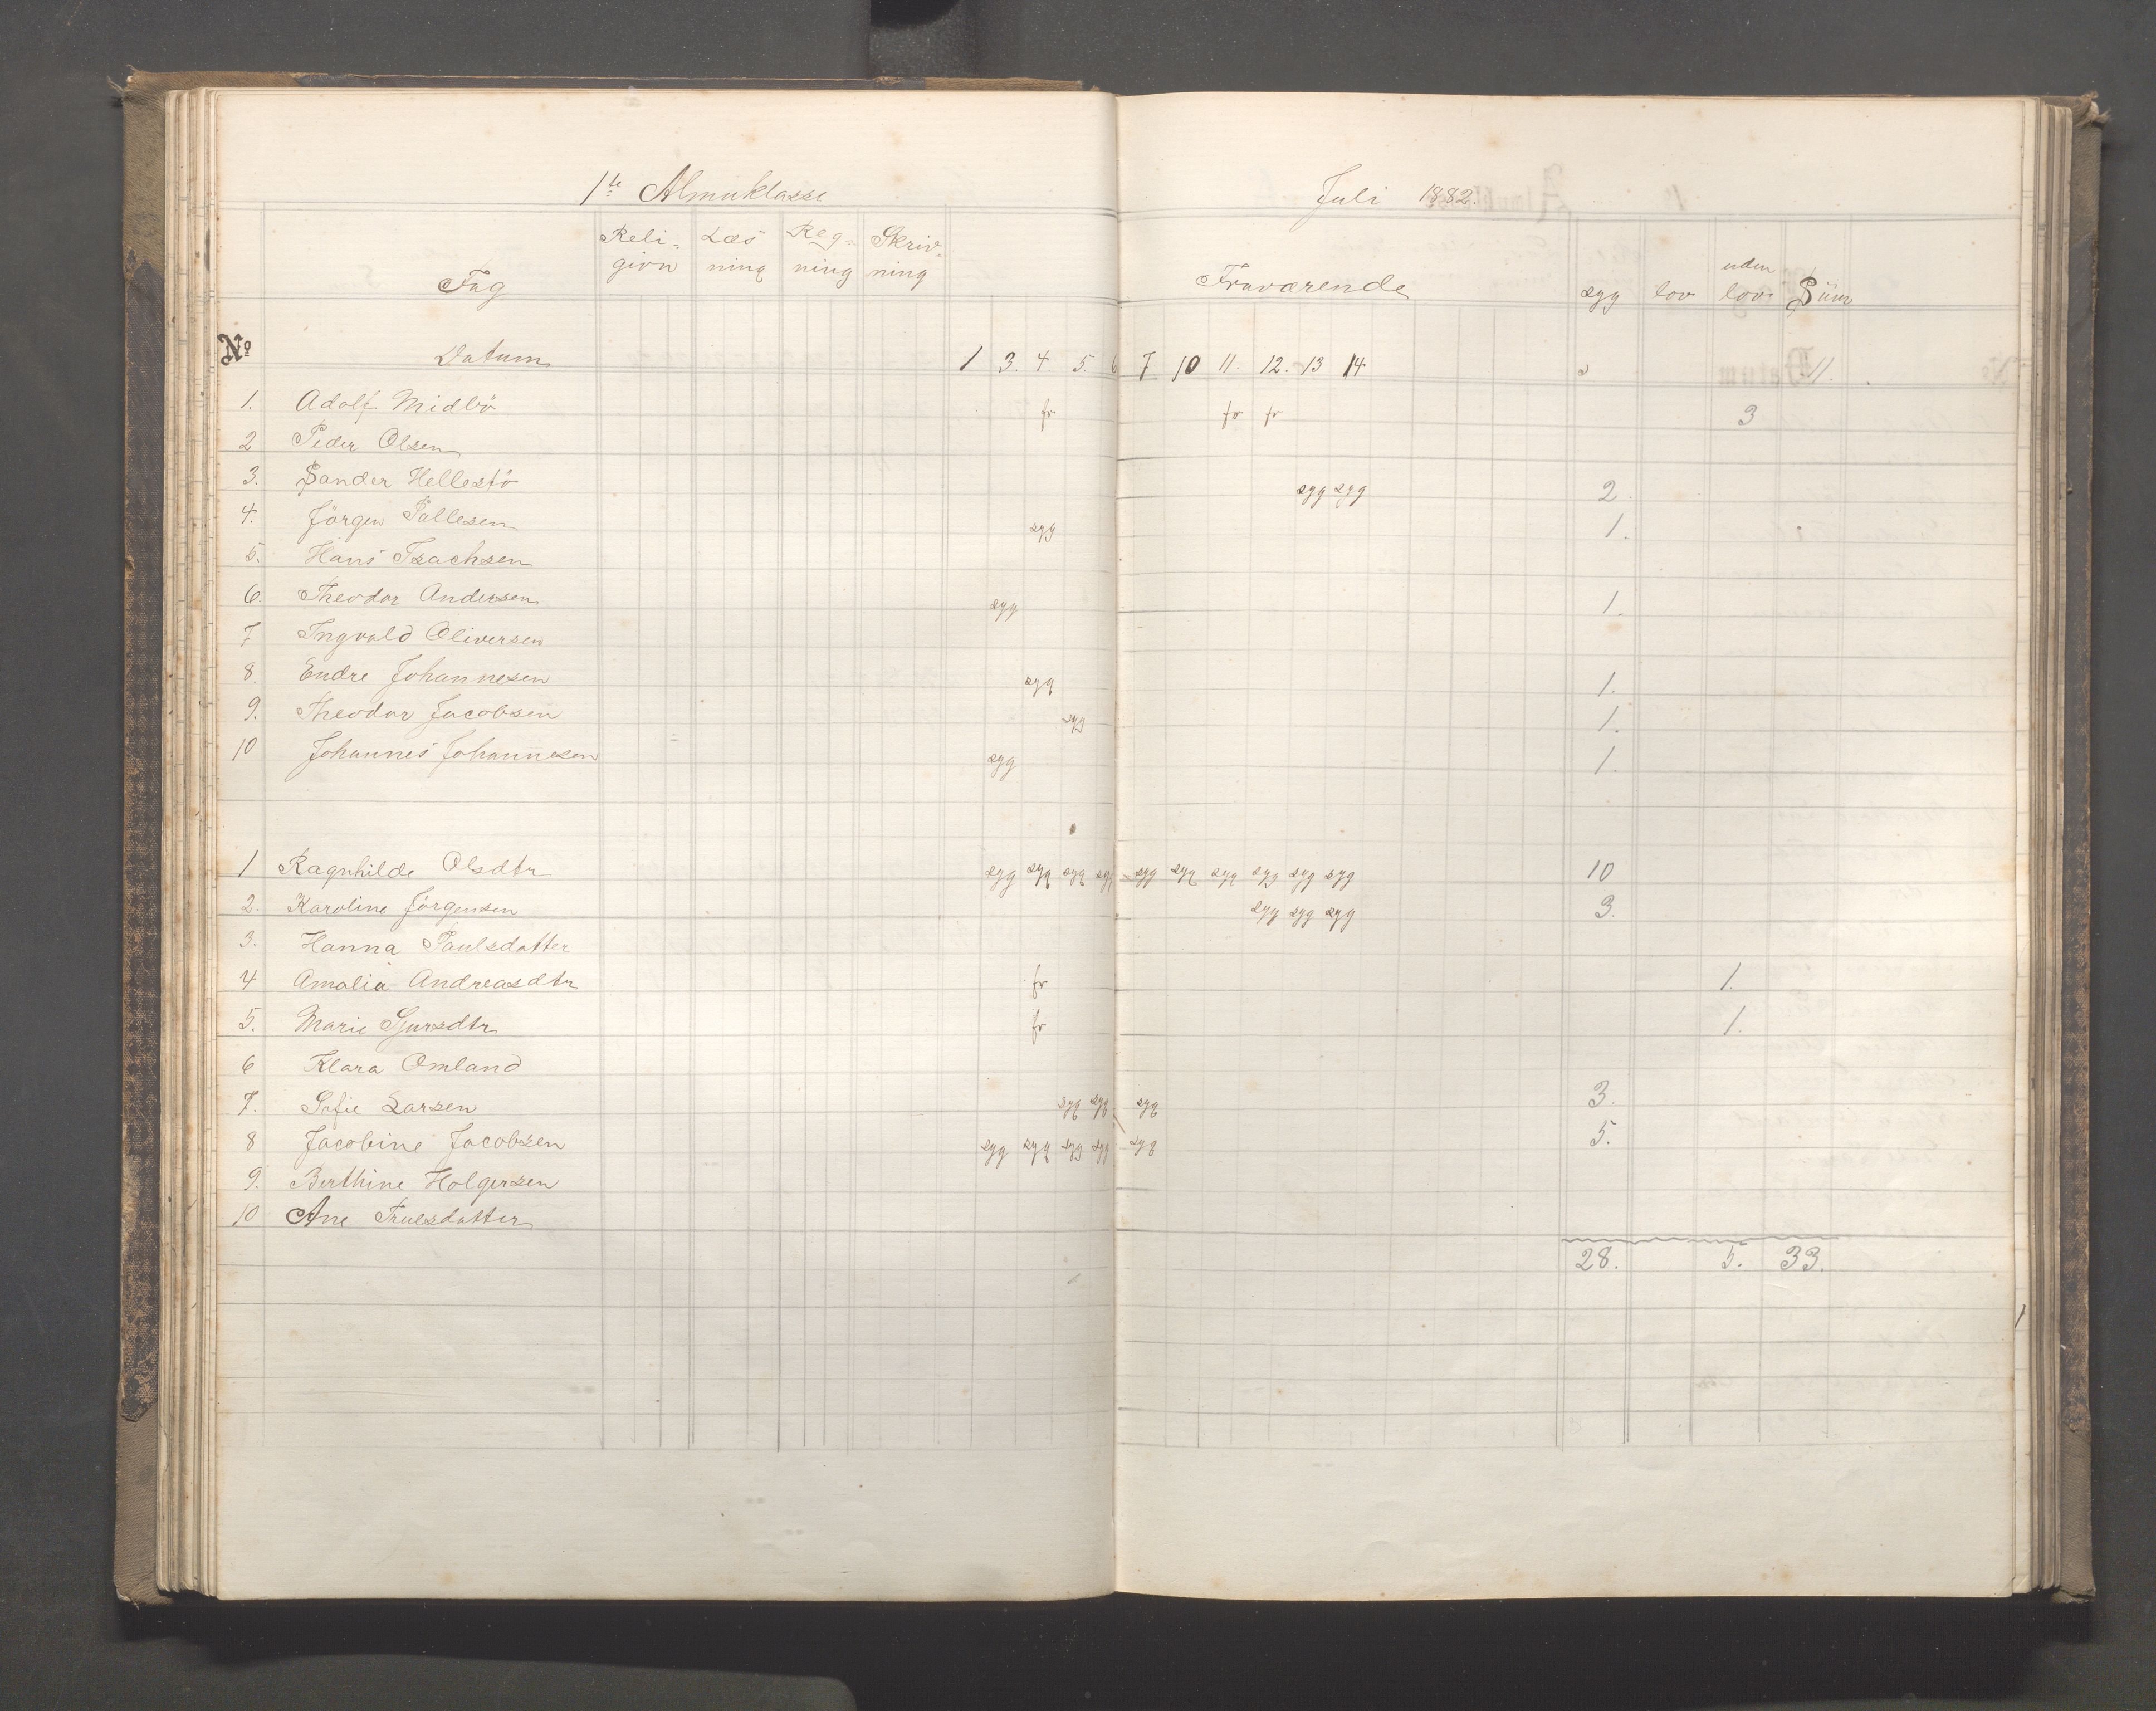 1te Almuklasse
Juli 1882.
Reli= Læs Reg= Skriv=
gion ning ning ning
Fag Fraværende syg lov uden lov Sum
No Datum 1 3. 4 5. 6 7 10 11. 12. 13 14
1. Adolf Midbö fr fr fr 3
2 Peder Olsen
3. Sander Hellestö syg syg 2.
4. Jörgen Pallesen syg 1.
5. Hans Isachsen
6. Theodor Andersen syg 1.
7 Ingvald Oliversen
8. Endre Johannesen syg 1.
9. Theodor Jacobsen syg 1.
10 Johannes Johannesen syg 1.
1 Ragnhilde Olsdtr syg syg syg syg syg syg syg syg syg syg 10
2. Karoline Jörgensen syg syg syg 3.
3. Hanna Paulsdatter
4 Amalia Andreasdtr fr 1.
5. Marie Sjursdtr fr 1.
6 Klara Omland
7. Sofie Larsen syg syg syg 3.
8 Jacobine Jacobsen syg syg syg syg syg 5.
9. Berthine Holgersen
10 Ane Truelsdatter
28. 5. 33.